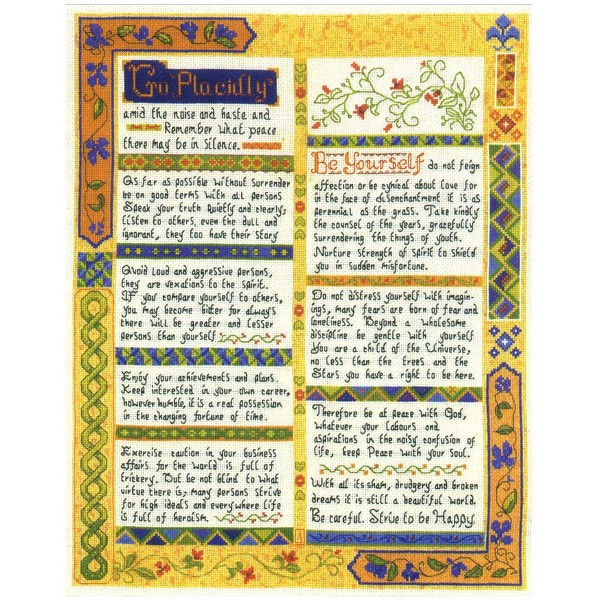 Go Placidly
amid the noise and haste and
Remember what peace
there may be in silence.
As far as possible without surrender
be on good terms with all persons
Speak your truth quietly and clearly;
listen to others, even the dull and
ignorant, they too have their story
Avoid loud and aggressive persons,
they are vexations to the spirit.
If you compare yourself to others,
you may become bitter for always
there will be greater and lesser
persons than yourself
Enjoy your achievements and plans.
Keep interested in your own career,
however humble, it is a real possession
in the changing fortune of time.
Exercise caution in your business
affairs for the world is full of
trickery. But be not blind to what
virtue there is; many persons strive
for high ideals and everywhere life
is full of heroism.
Be Yourself do not feign
affection or be cynical about love for
in the face of disenchantment it is as
perennial as the grass. Take kindly
the counsel of the years, gracefully
surrendering the things of youth.
Nurture strength of spirit to shield
you in sudden misfortune.
Do not distress yourself with imagin-
ings, many fears are born of fear and
loneliness. Beyond a wholesome
discipline be gentle with yourself
You are a child of the Universe,
no less than the trees and the
Stars you have a right to be here.
Therefore be at peace with God,
whatever your labours and
aspirations in the noisy confusion of
life, keep Peace with your Soul.
With all its sham, drudgery and broken
dreams it is still a beautiful world.
Be careful. Strive to be Happy.